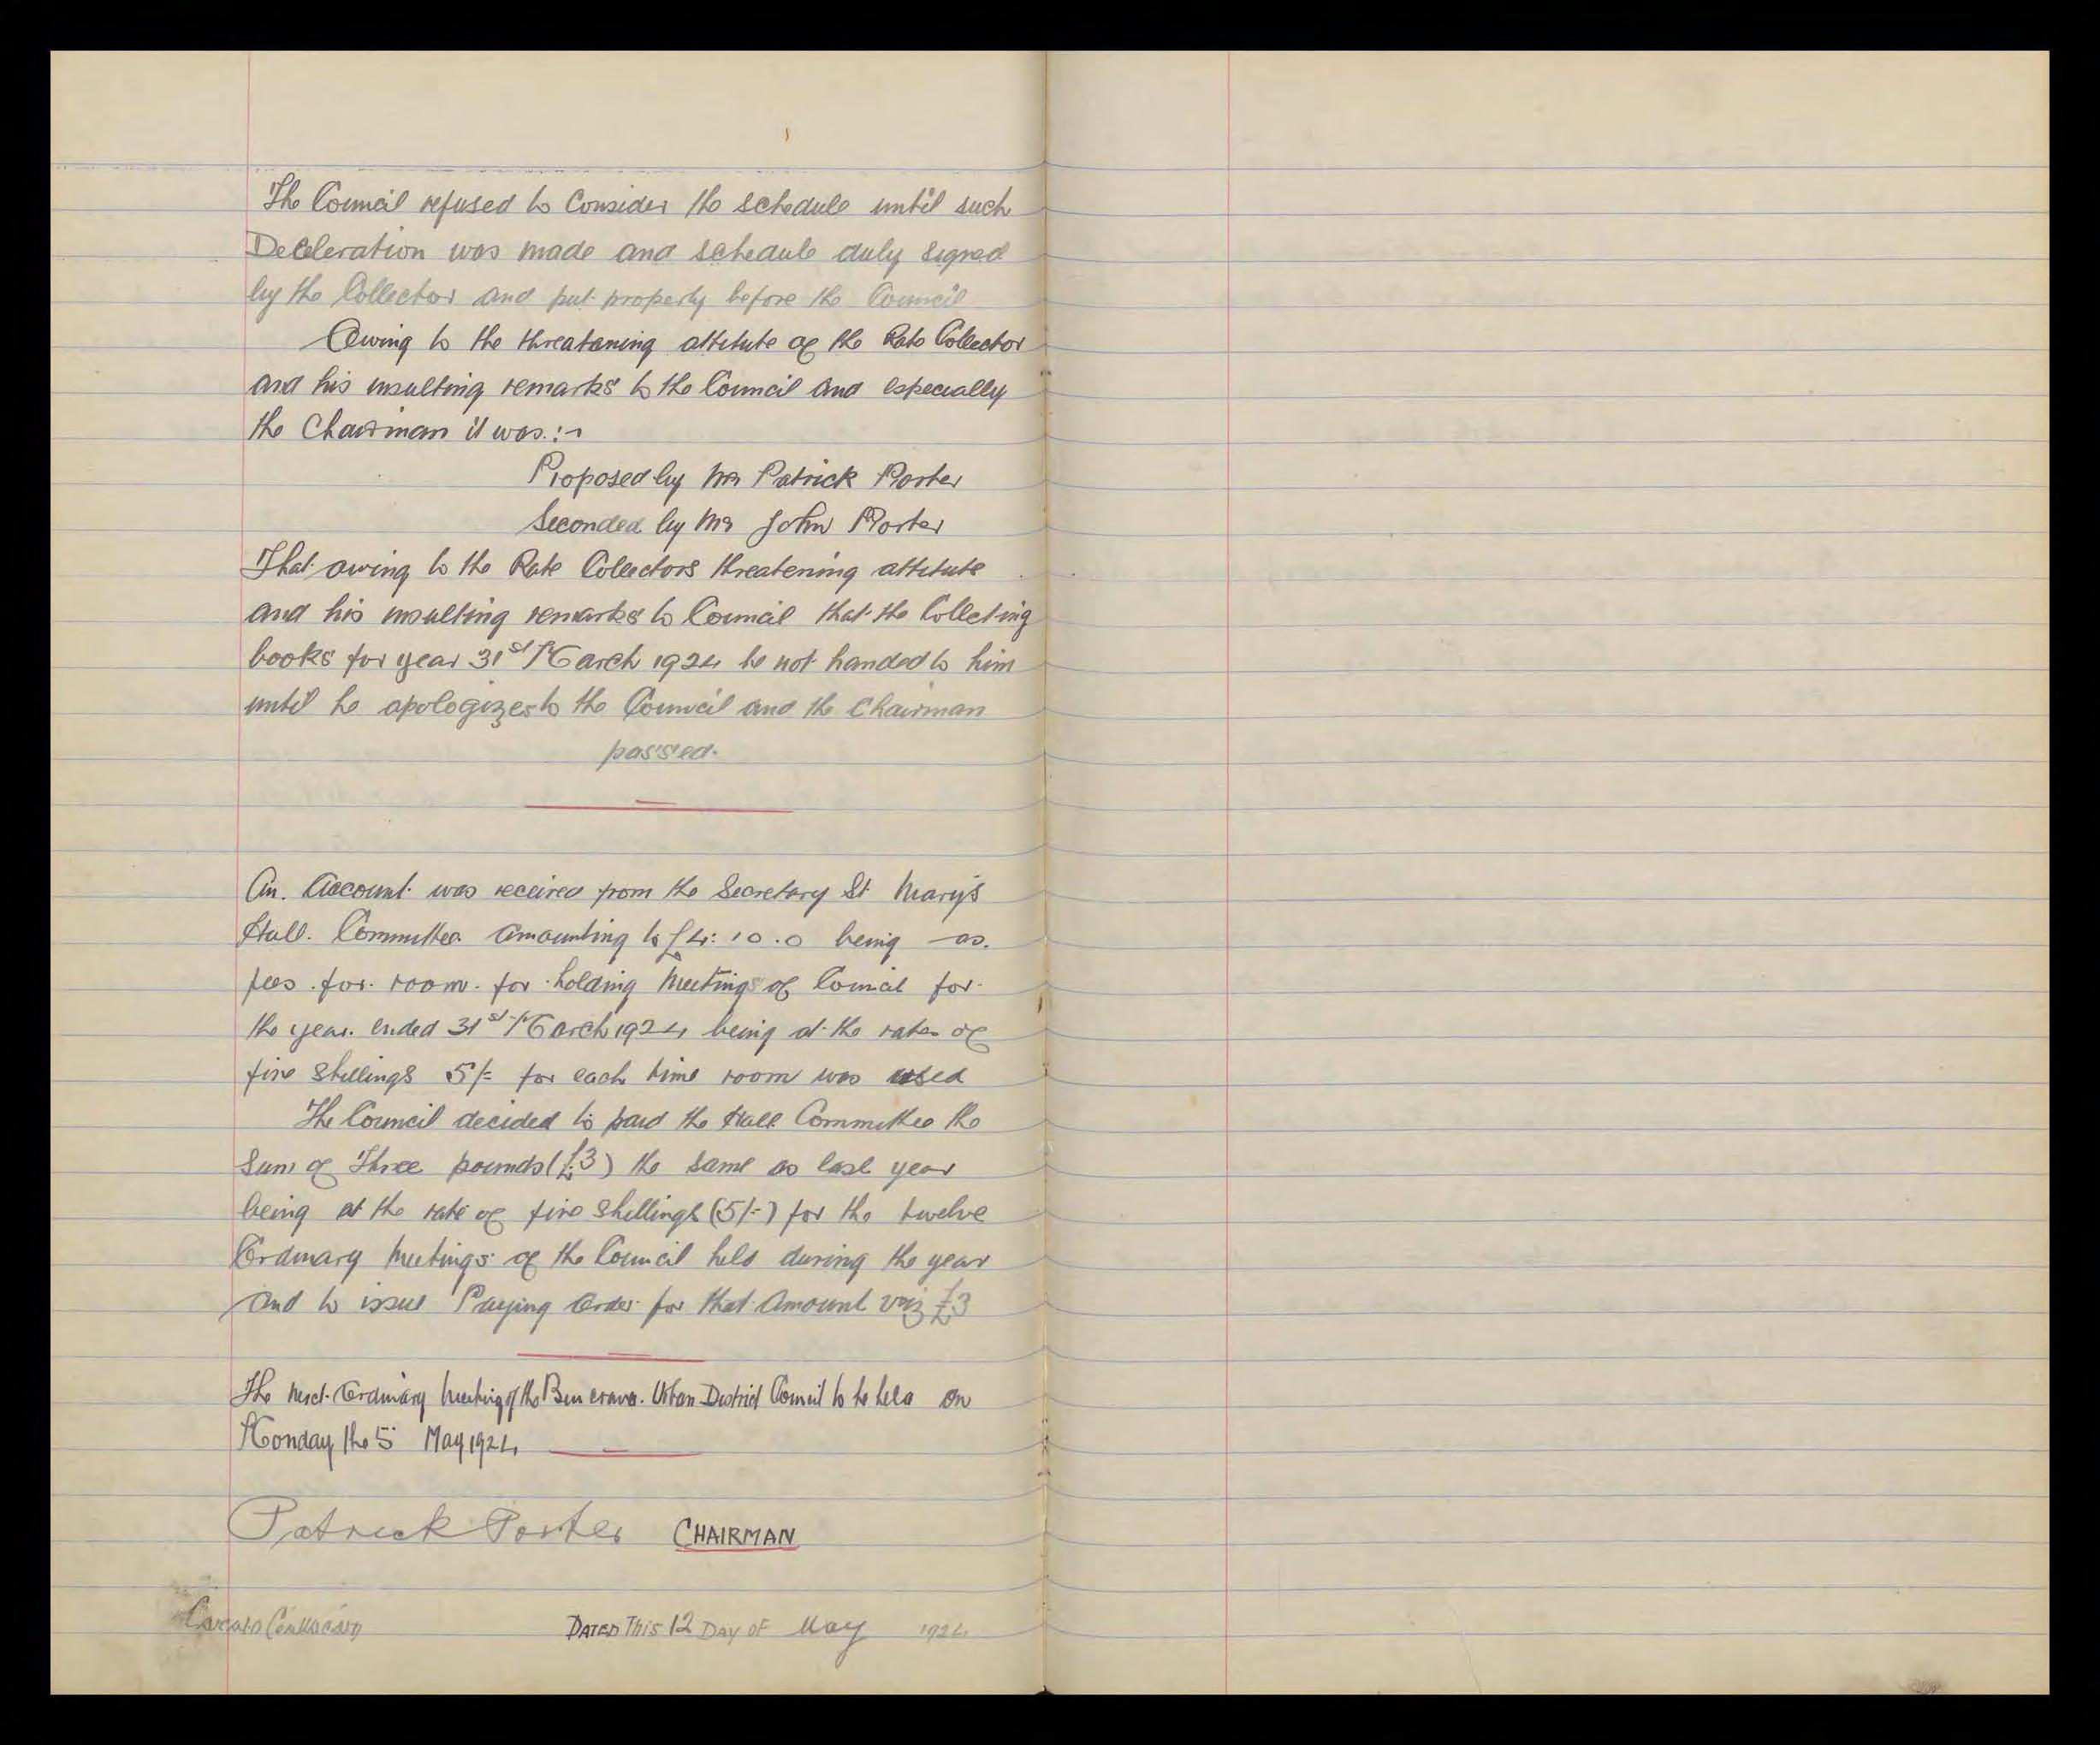 The Council refused to Consider the schedule until such
Decleleration was made and schedule duly signed
by the Collector and put properly before the Council
Owing to the threataning attitute of the Rate Collector
and his insulting remarks to the Council and especially
the Chairman it was :-
Proposed by Mr Patrick Porter
Seconded by Mr John Porter
That owing to the Rate Colectors threatening attitute
and his insulting remarks to Council that the Colleting
books for year 31st March 1924 be not handed to him
until he apologizes to the Council and the Chairman
passed.
An. Account was received from the Secretary St Mary's
Hall. Committee amounting to £4: 10.0 being as.
fees for room for holding Meetings of Council for
the year ended 31st March 1924 being at the rate of
five Shillings 5/= for each time room was used
The Council decided to paid the Hall Committee the
Sum of Three pounds (£3) the same as last year
being at the rate of five Shillings (5/-) for the twelve
Ordinary Meetings of the Council held during the year
and to issue Paying Order for that Amount viz £3
The next Ordinary Meeting of the Buncrana. Urban District Council to be held on
Monday the 5 May 1924
Patrick Porter CHAIRMAN
DATED This 12 DAY OF May 1924